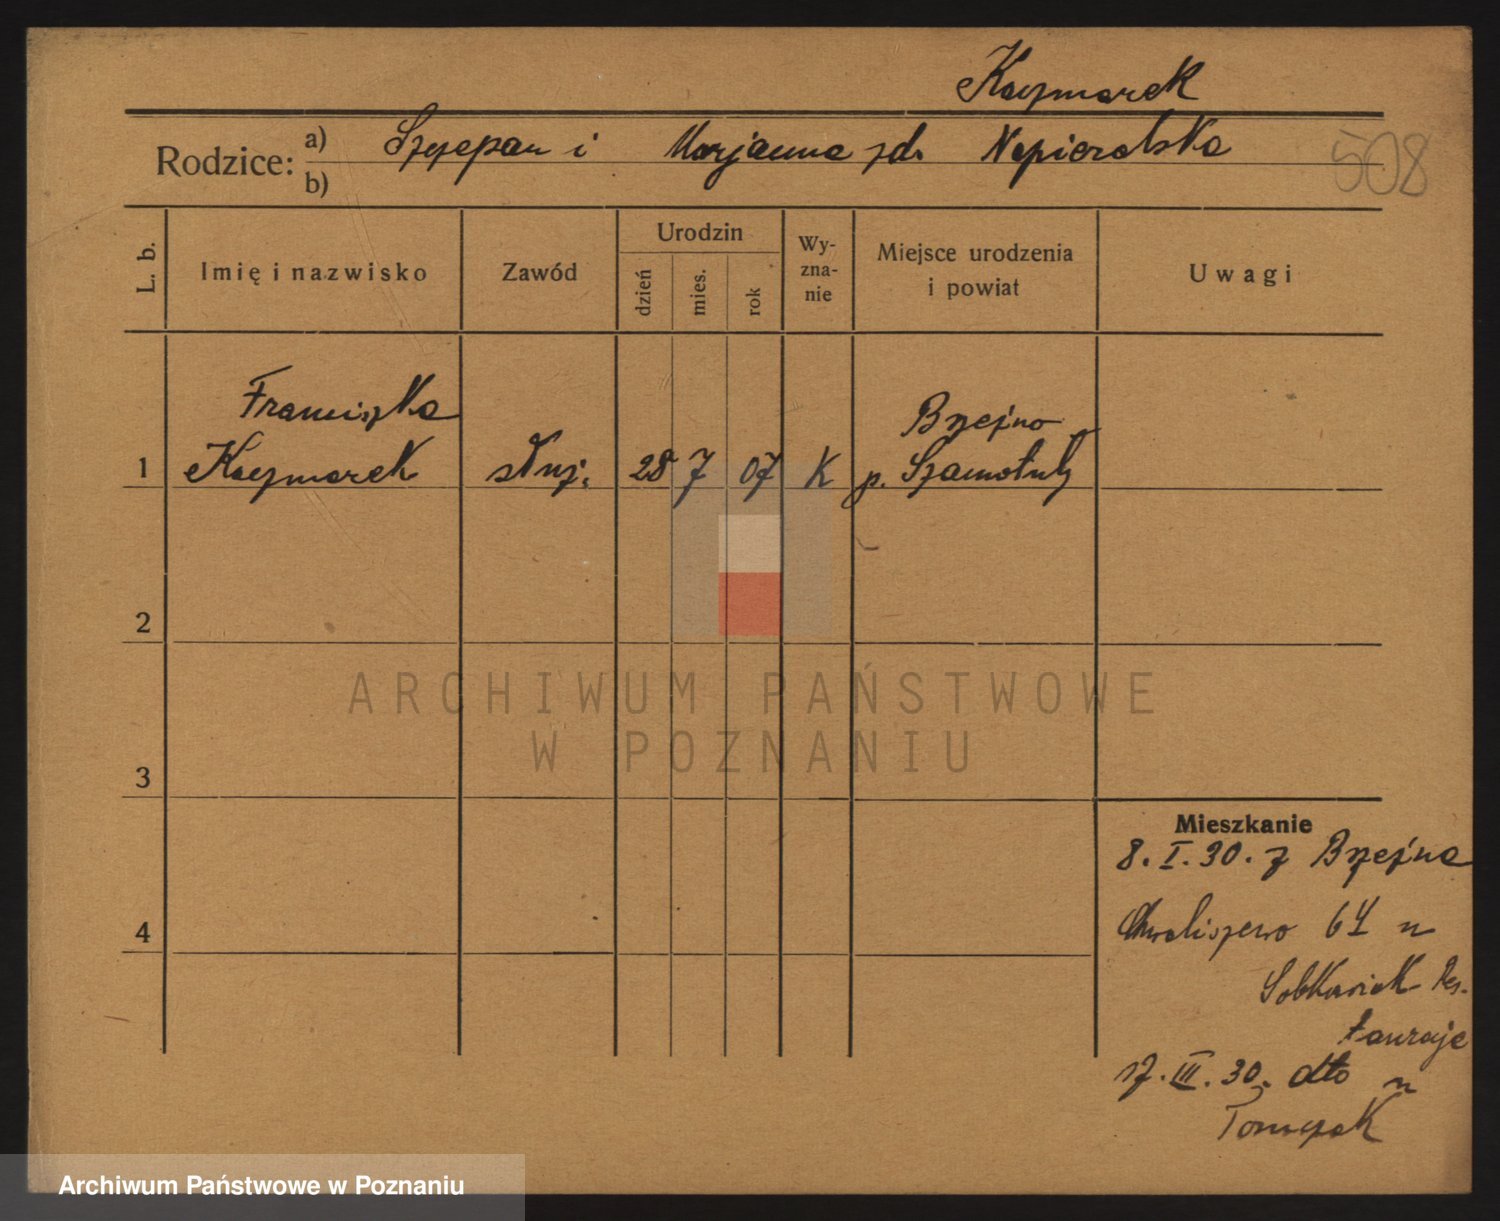 Kaczmarek
Rodzice: a) Szczepan i Marjanna zd. Napieralska
b)
508
L. b.
Imię i nazwisko
Zawód
Urodzin
dzień
mies.
rok
Wy-
zna-
nie
Miejsce urodzenia
i powiat
Uwagi
Franciszka
1 Kaczmarek służ. 28 7 07 K
Brzeźno
p. Szamotuły
2
ARCHIWUM PAŃSTWOWE
W POZNANIU
3
Mieszkanie
8. I. 30. z Brzeźna
4
Chwaliszewo 64 u
Sobkowiak Res.
tauracje
17. III. 30. dto u
Tomczak
Archiwum Państwowe w Poznaniu